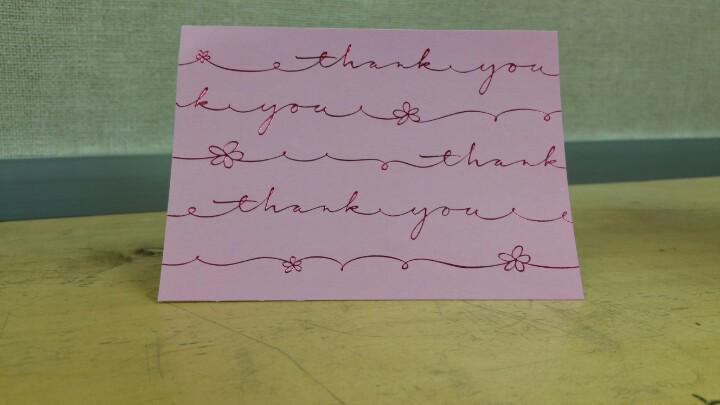 thank you
k you
thank
thank you